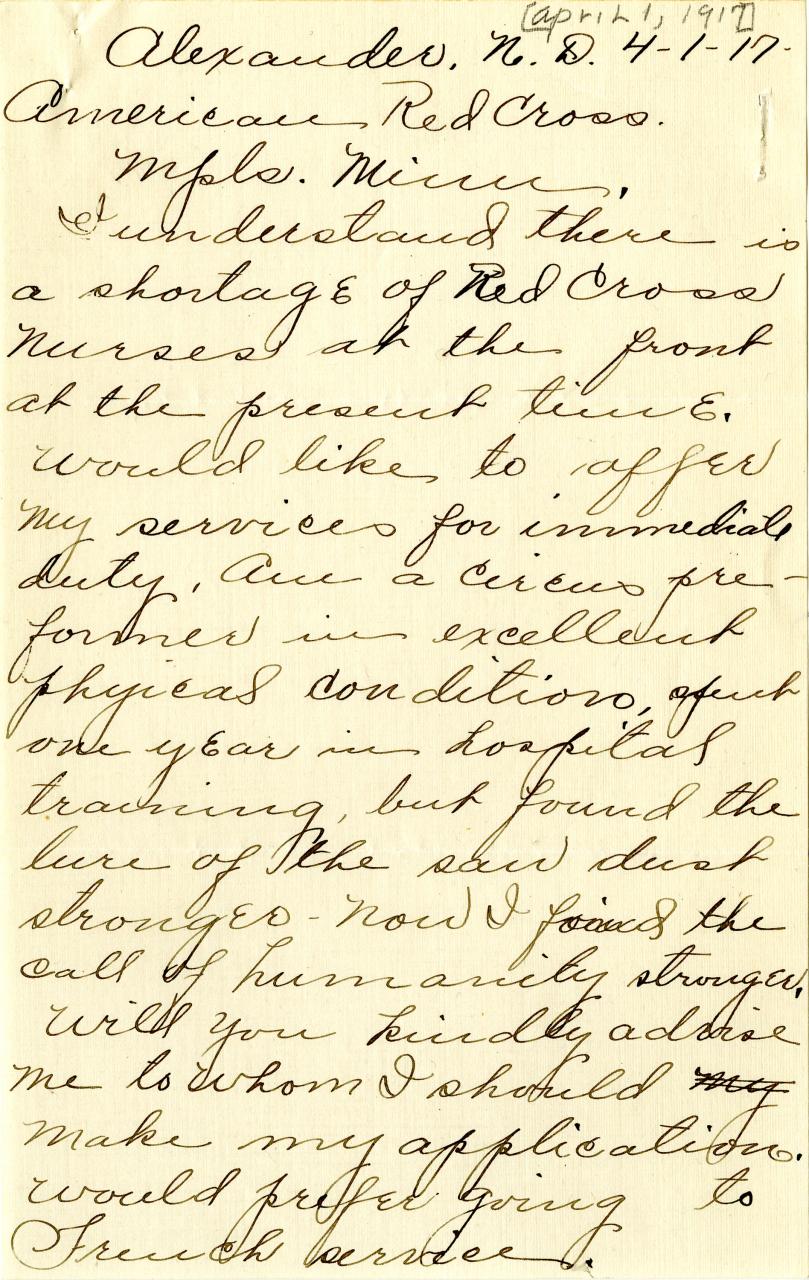 [april 1, 1917]
Alexander, N. D. 4-1-17-
American Red Cross.
Mpls. Minn,
I understand there is
a shortage of Red Cross
Nurses at the front
at the present time.
Would like to offer
my services for immediate
duty, Am a Circus pre-
former in excellent
phyical condition, spent
one year in hospital
training, but found the
lure of the saw dust
stronger - Now I find the
call of humanity stronger.
Will you kindly advise
me to whom I should my
make my application.
would prefer going to
French service.